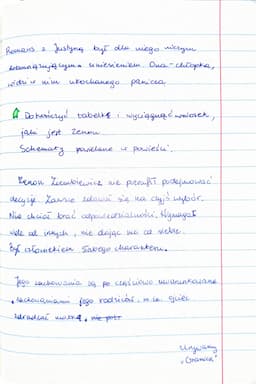 Romans z Justyną był dla niego niczym
niezobowiązującym uniesieniem. Ona - chłopka,
widzi w nim ukochanego panicza
Dokończyć tabelkę i wyciągnąć wniosek,
jaki jest Zenon.
Schematy powielane w powieści.
Zenon Ziembiewicz nie potrafił podejmować
decyzji. Zawsze zdawał się na czyjś wybór.
Nie chciał brać odpowiedzialności. Wymagał
wiele od innych, nie dając nic od siebie.
Był człowiekiem słabego charakteru.
Jego zachowania są po częściowo uwarunkowane
zachowaniami jego rodziców, m.in. ojciec
zdradzał matkę,
"Granica"